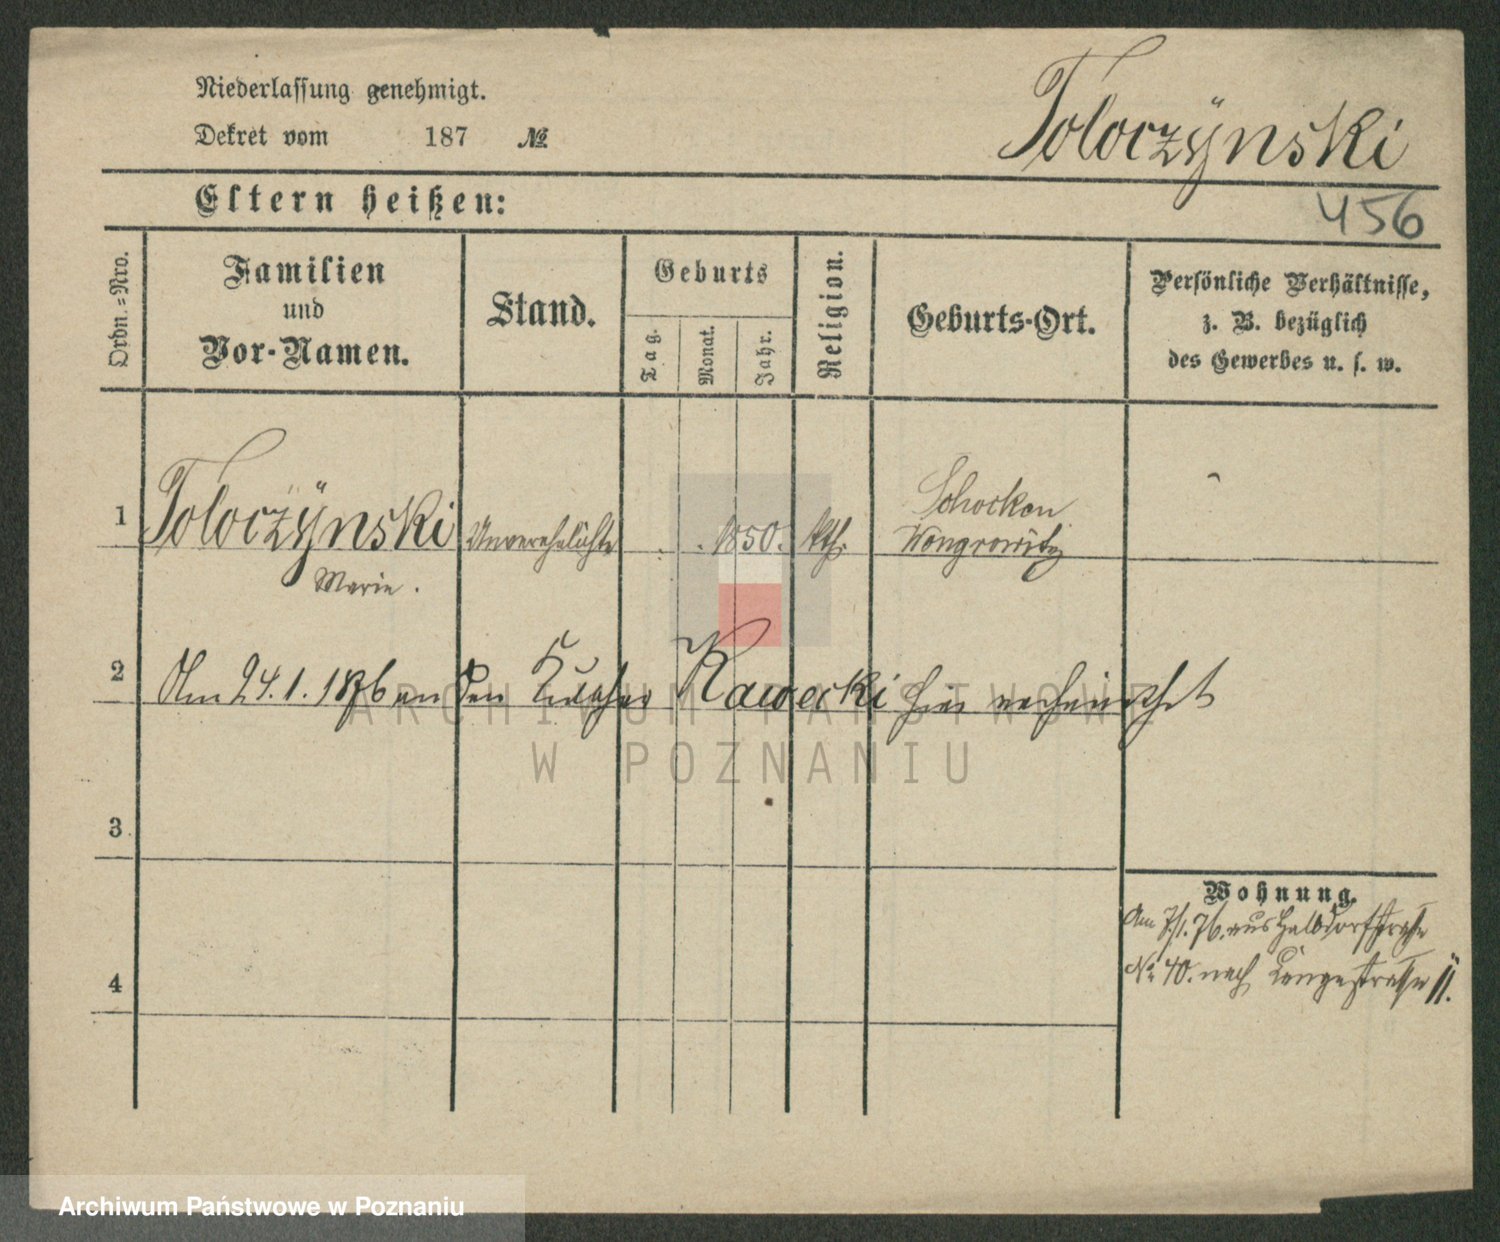 Niederlassung genehmigt.
Dekret vom 187 №
Toloczÿnski
Eltern heißen:
456
Ordn.-Nro.
Familien
und
Vor-Namen.
Stand.
Geburts
Tag.
Monat.
Jahr.
Religion.
Geburts-Ort.
Persönliche Verhältnisse,
z. B. bezüglich
des Gewerbes u. s. w.
1
Toloczÿnski
Marie.
Unverehelichte
1850.
kth.
Schocken
Wongrowitz
2
Am 24.1.1876 an den Kutscher Kawecki hier verheirathet
ARCHIWUM PAŃSTWOWE
W POZNANIU
3
4
Wohnung.
Am 7/1.76. aus Halbdorfstraße
No 40. nach Langestraße 11.
Archiwum Państwowe w Poznaniu